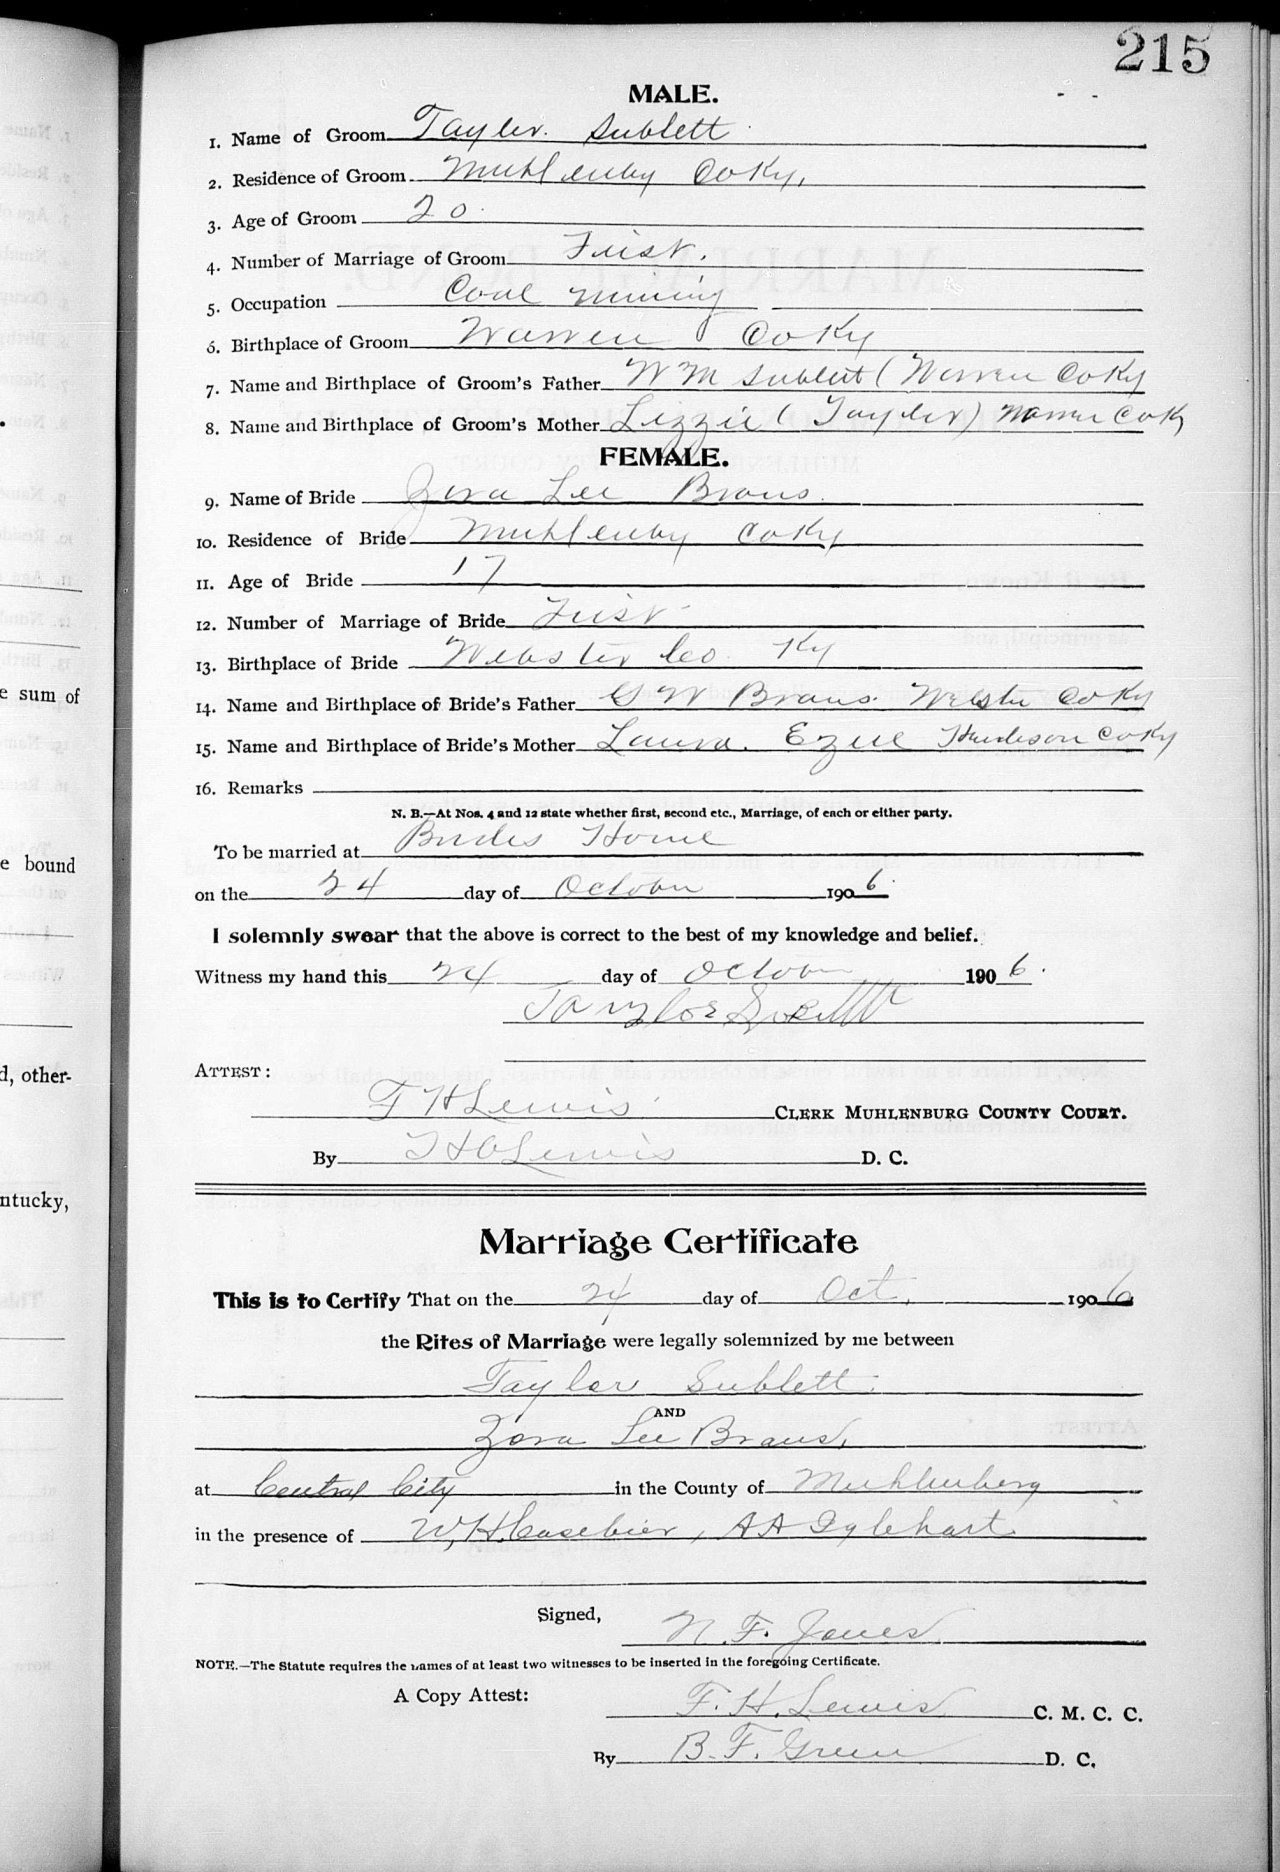 215
MALE.
1. Name of Groom Tayler. Sublett
2. Residence of Groom Muhlenby Co Ky.
3. Age of Groom 20.
4. Number of Marriage of Groom First.
5. Occupation Coal mining
6. Birthplace of Groom Warren Co Ky
7. Name and Birthplace of Groom's Father W M Sublett ( Warren Co Ky
8. Name and Birthplace of Groom's Mother Lizzie ( Tayler) Warren Co K
FEMALE.
9. Name of Bride Zora Lee Braus.
10. Residence of Bride Muhlenby Co Ky
11. Age of Bride 17
12. Number of Marriage of Bride First
13. Birthplace of Bride Webster Co. Ky
14. Name and Birthplace of Bride's Father G W Braus. Webster Co Ky
15. Name and Birthplace of Bride's Mother Laura. Co Ky
16. Remarks
N. B.—At Nos. 4 and 12 state whether first, second etc., Marriage, of each or either party.
To be married at Brides Home
on the 24 day of October 1906.
I solemnly swear that the above is correct to the best of my knowledge and belief.
Witness my hand this 24 day of October 1906.
Taylor
ATTEST:
F H Lewis CLERK MUHLENBURG COUNTY COURT.
By Lewis D. C.
Marriage Certificate
This is to Certify That on the 24 day of Oct. 1906
the Rites of Marriage were legally solemnized by me between
Taylor Sublett.
AND
Zora Lee Braus,
at Central City in the County of Muhlenberg
in the presence of W, H. Casebier, A A Iglehart
Signed,
N. F. Jones
NOTE.—The Statute requires the names of at least two witnesses to be inserted in the foregoing Certificate.
A Copy Attest:
F. H. Lewis C. M. C. C.
By B. F. Green D. C.
e sum of
e bound
d, other-
ntucky,